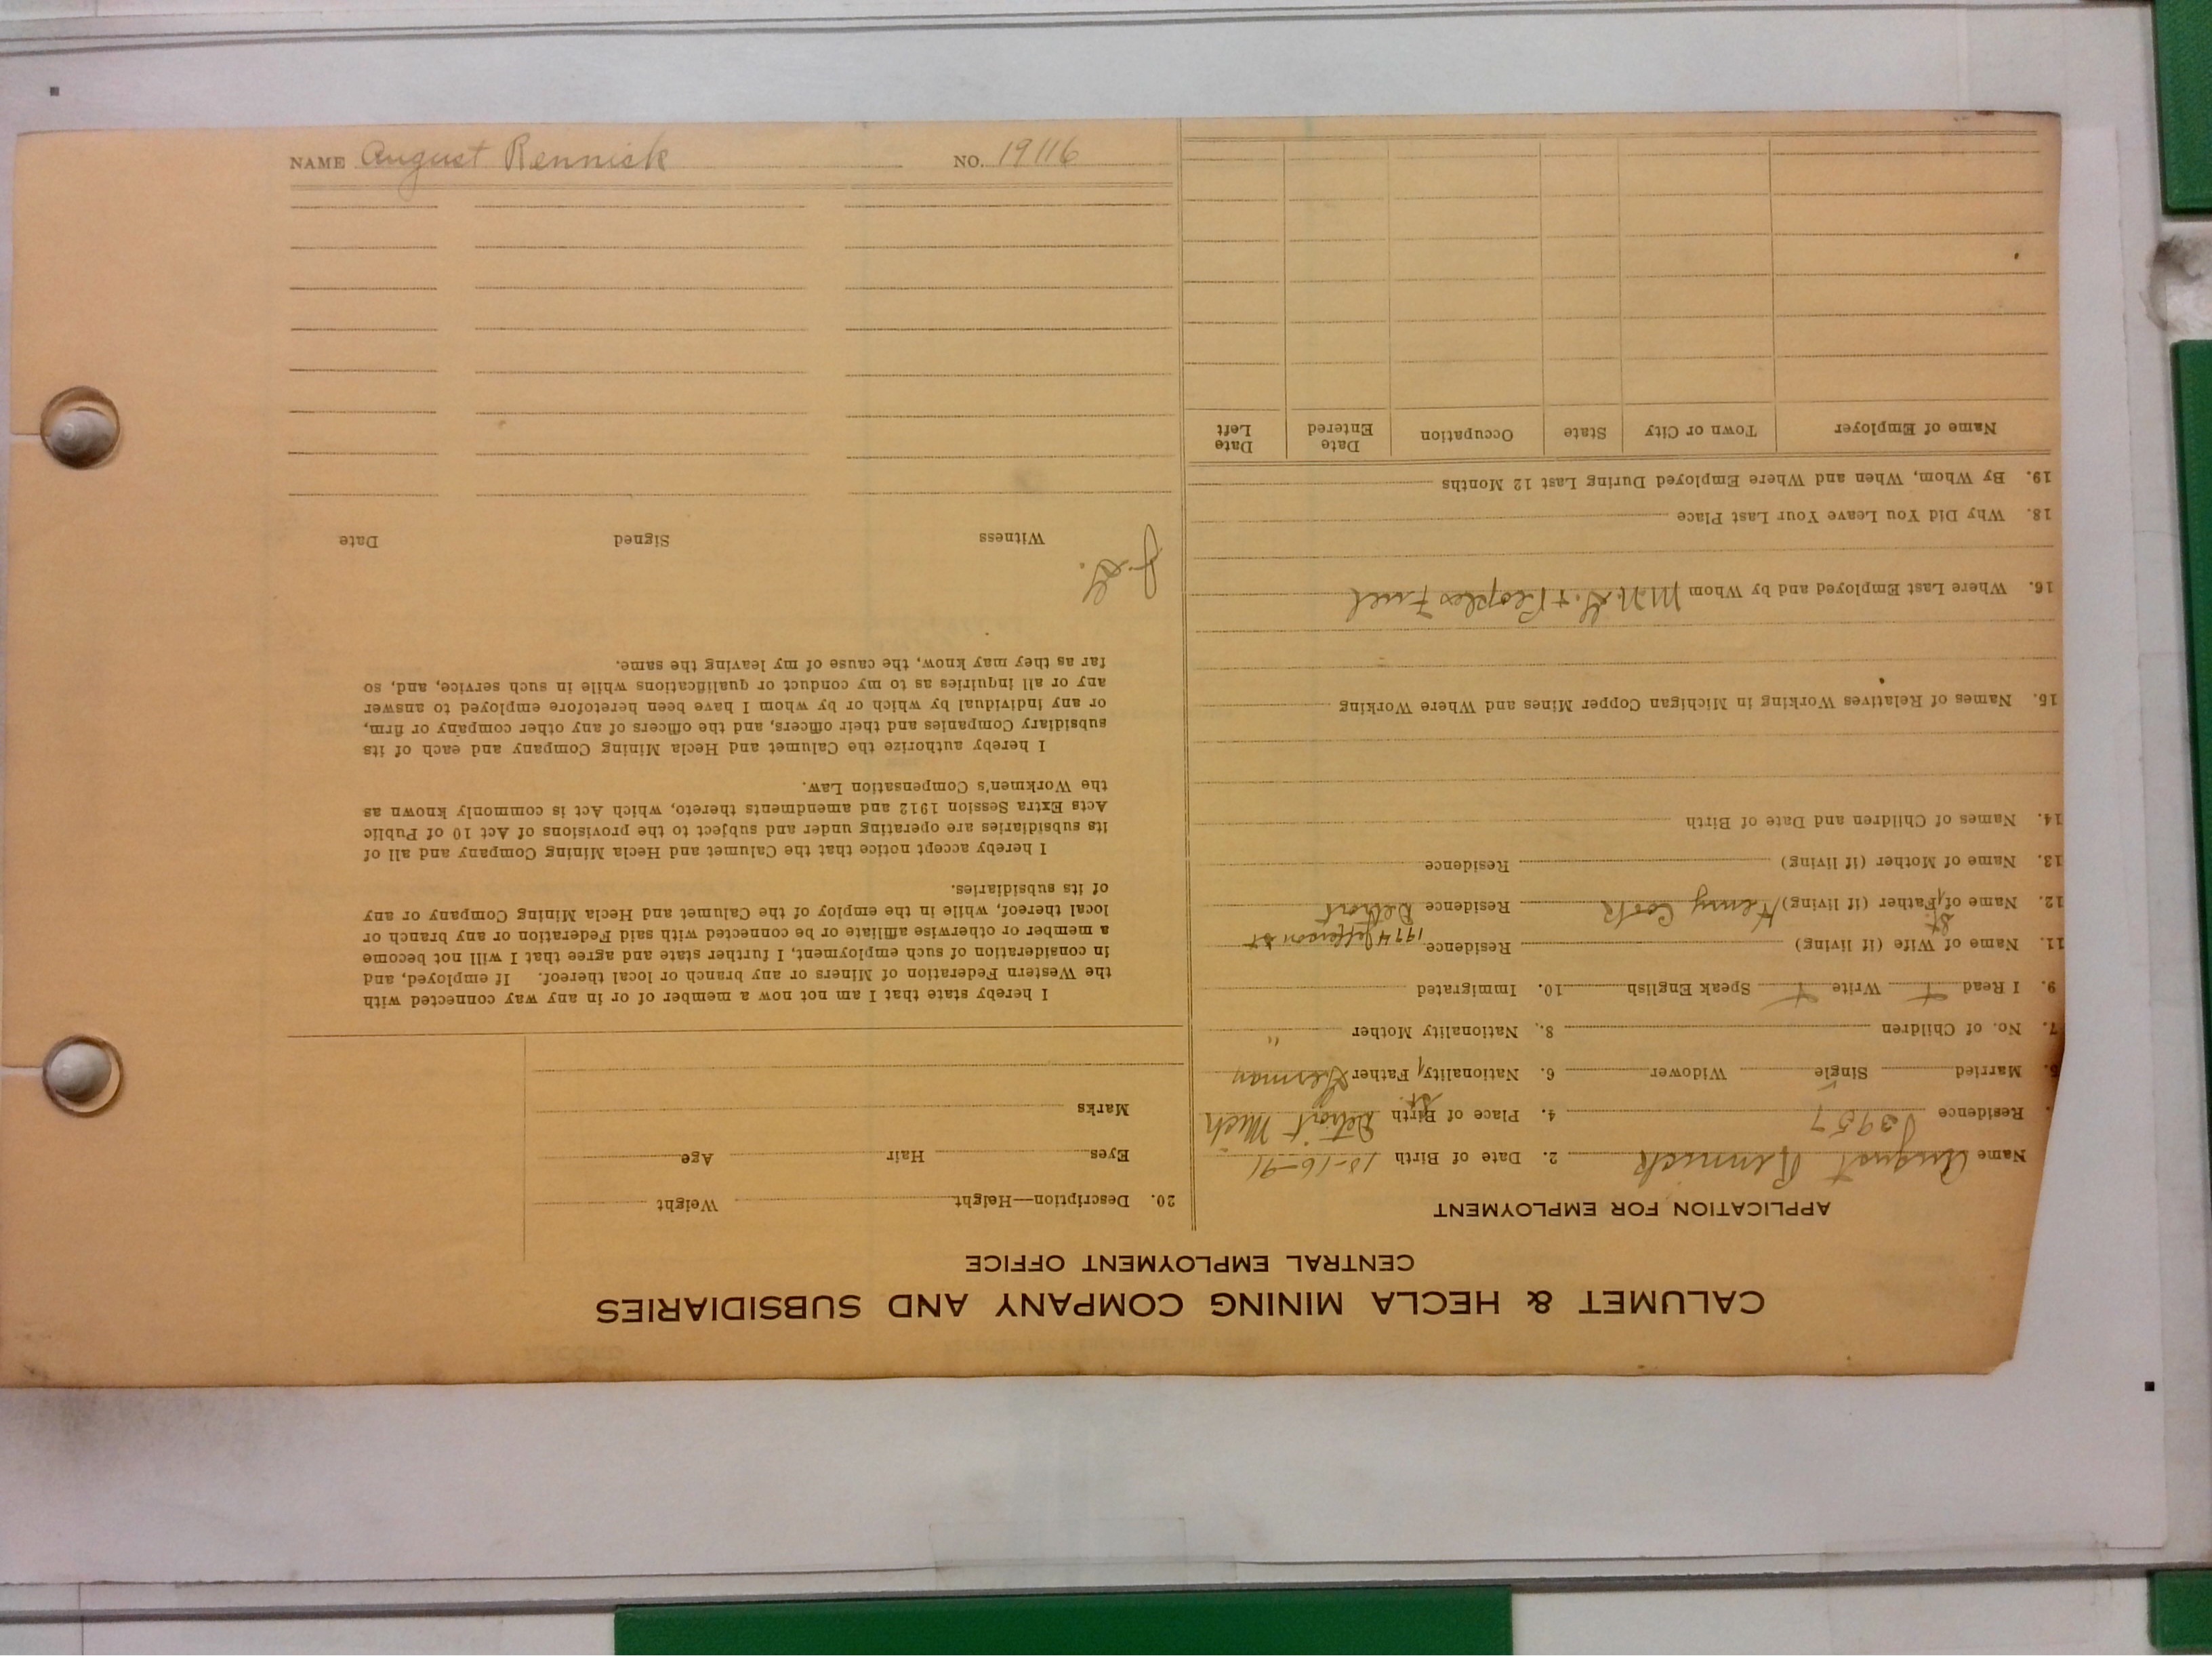 NAME August Rennick NO. 19116
CALUMET & HECLA MINING COMPANY AND SUBSIDIARIES
CENTRAL EMPLOYMENT OFFICE
APPLICATION FOR EMPLOYMENT
Name August Rennick 2. Date of Birth 10-16-91
Residence J3957 4. Place of Birth Detroit Mich
5. Married Single Widower 6. Nationality Father St. German
7. No. of Children 8. Nationality Mother "
9. I Read Write Speak English 10. Immigrated
11. Name of Wife (if living) Residence 1974 Jefferson St
12. Name of St. Father (if living) Henry Cook Residence Detroit
13. Name of Mother (if living) Residence
14. Names of Children and Date of Birth
15. Names of Relatives Working in Michigan Copper Mines and Where Working
16. Where Last Employed and by Whom M.N.G. + Peoples Fuel
18. Why Did You Leave Your Last Place
19. By Whom, When and Where Employed During Last 12 Months
Name of Employer Town or City State Occupation Date Entered Date Left
20. Description—Height Weight
Eyes Hair Age
Marks
I hereby state that I am not now a member of or in any way connected with
the Western Federation of Miners or any branch or local thereof. If employed, and
in consideration of such employment, I further state and agree that I will not become
a member or otherwise affiliate or be connected with said Federation or any branch or
local thereof, while in the employ of the Calumet and Hecla Mining Company or any
of its subsidiaries.
I hereby accept notice that the Calumet and Hecla Mining Company and all of
its subsidiaries are operating under and subject to the provisions of Act 10 of Public
Acts Extra Session 1912 and amendments thereto, which Act is commonly known as
the Workmen's Compensation Law.
I hereby authorize the Calumet and Hecla Mining Company and each of its
subsidiary Companies and their officers, and the officers of any other company or firm,
or any individual by which or by whom I have been heretofore employed to answer
any or all inquiries as to my conduct or qualifications while in such service, and, so
far as they may know, the cause of my leaving the same.
J.G.
Witness Signed Date